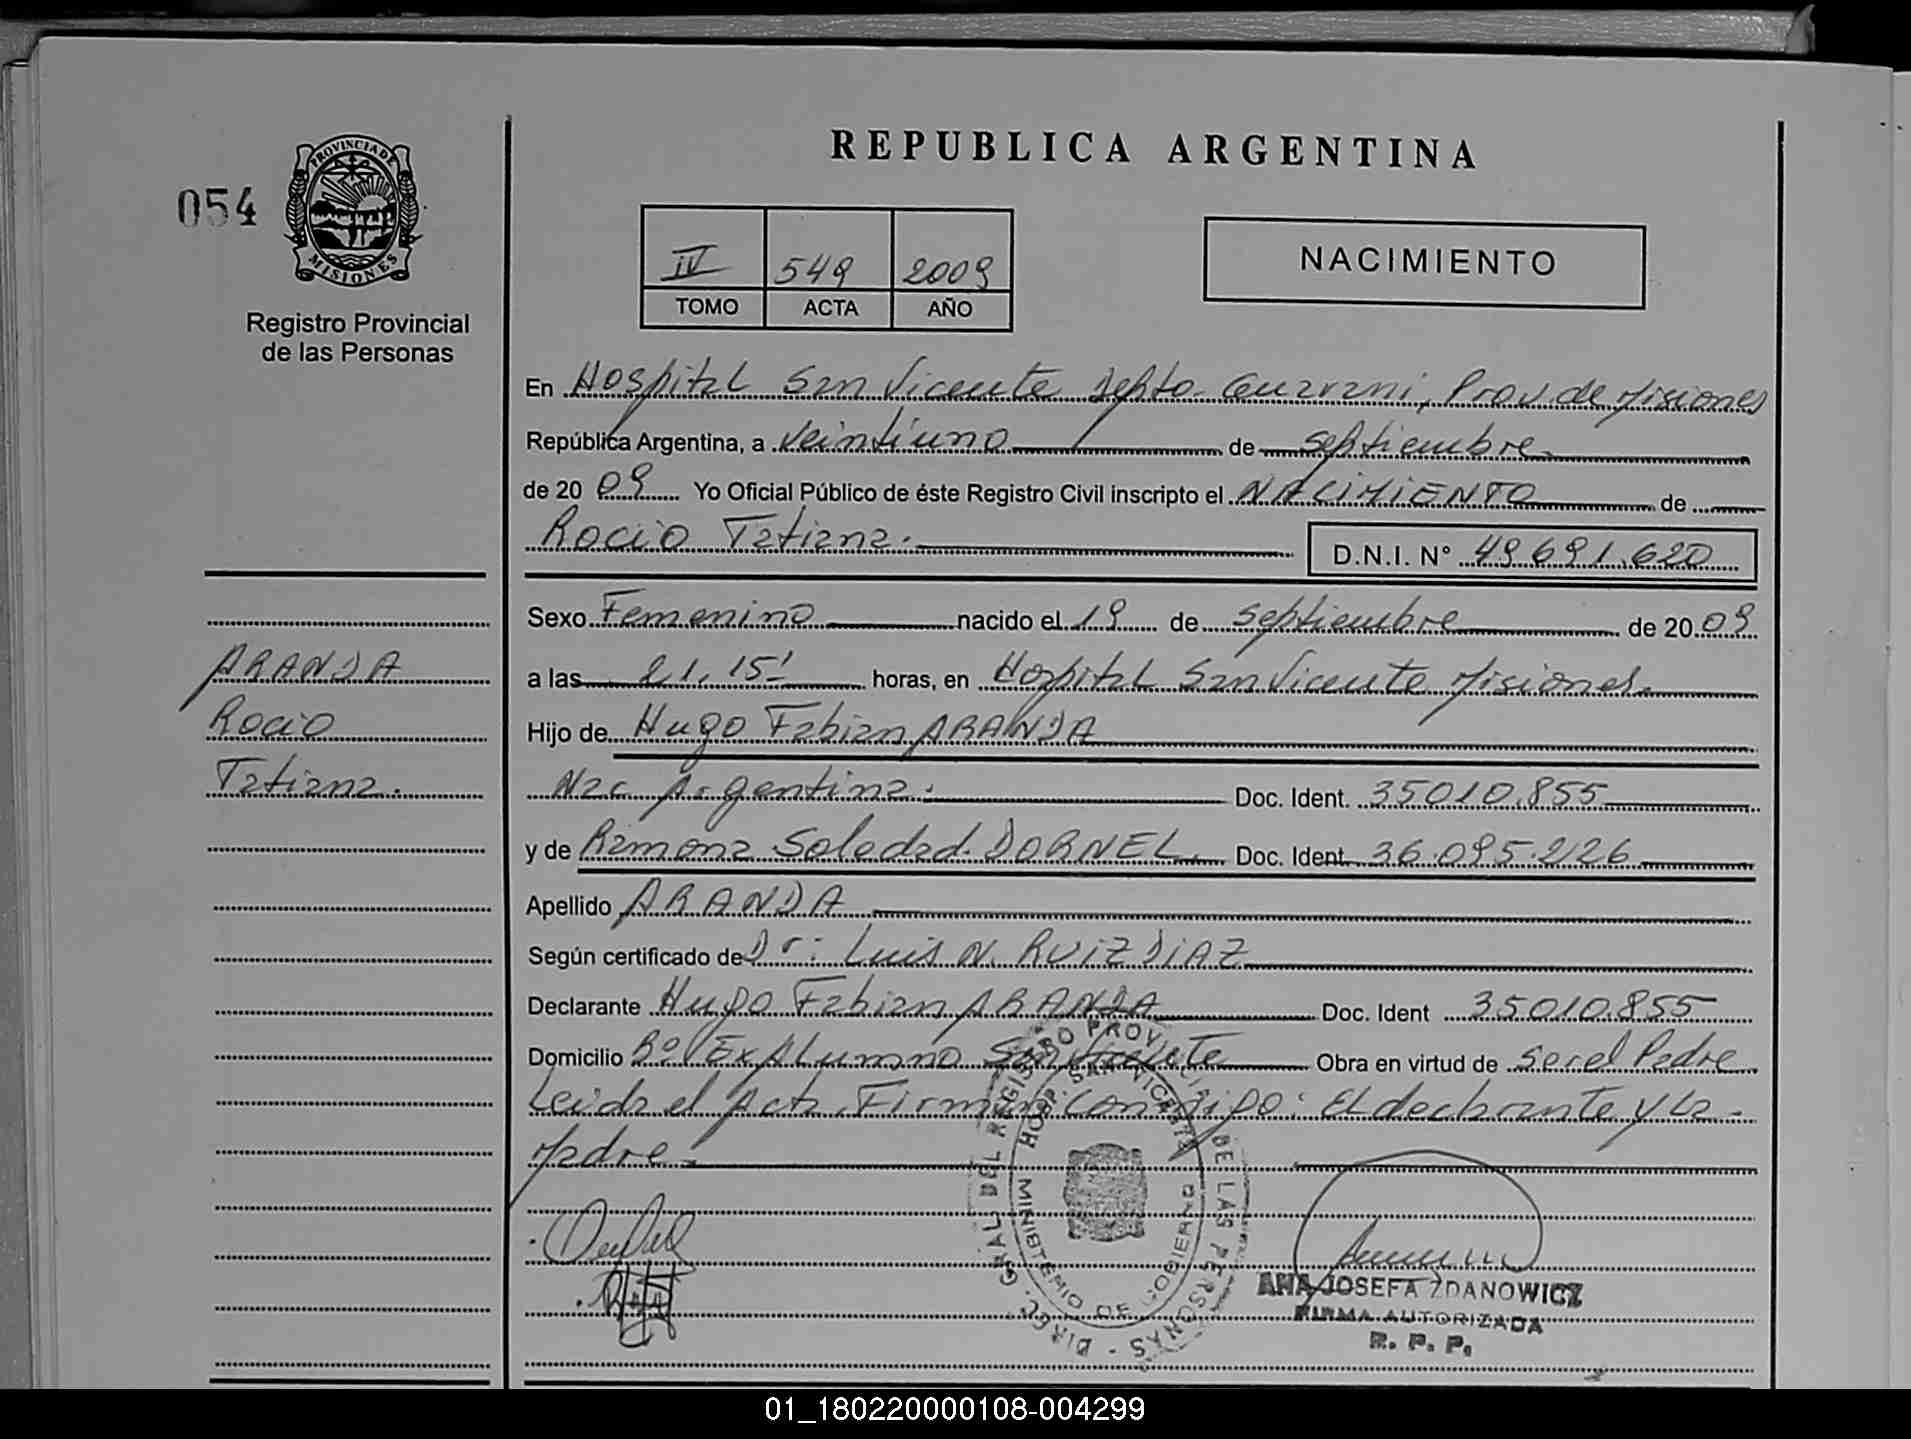 REPUBLICA ARGENTINA
054
PROVINCIA DE MISIONES
Registro Provincial
de las Personas
IV 549 2009
TOMO ACTA AÑO
NACIMIENTO
En Hospital San Vicente Depto. Guarani, Prov de Misiones
República Argentina, a veintiuno de septiembre
de 20 09 Yo Oficial Público de éste Registro Civil inscripto el NACIMIENTO de
Rocio Tatiana.
D.N.I. N° 49.691.620
Sexo Femenino nacido el 19 de septiembre de 20 09
a las 21,15' horas, en Hospital San Vicente Misiones.
Hijo de Hugo Fabian ARANDA
Nac Argentina. Doc. Ident. 35010.855
y de Ramona Soledad DORNEL Doc. Ident. 36.095.226
Apellido ARANDA
Según certificado de Dr: Luis N. RUIZ DIAZ
Declarante Hugo Fabian ARANDA Doc. Ident 35010.855
Domicilio Bº Ex Alumno San Vicente Obra en virtud de ser el Padre
Leida el Acta, Firman conmigo: El declarante y la
Madre
ARANDA
Rocio
Tatiana.
DIREC. GRAL DEL REGISTRO PROVINCIAL DE LAS PERSONAS
HOSP. SAN VICENTE
MINISTERIO DE GOBIERNO
ANA JOSEFA ZDANOWICZ
FIRMA AUTORIZADA
R. P. P.
01_180220000108-004299